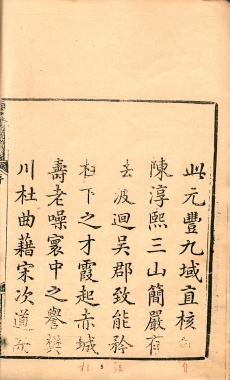 此元豐九域直核
陳淳熙三山簡嚴有
去波迴吳郡致能矜
柱下之才霞起赤城
壽老噪寰中之譽樊
川杜曲藉宋次道而